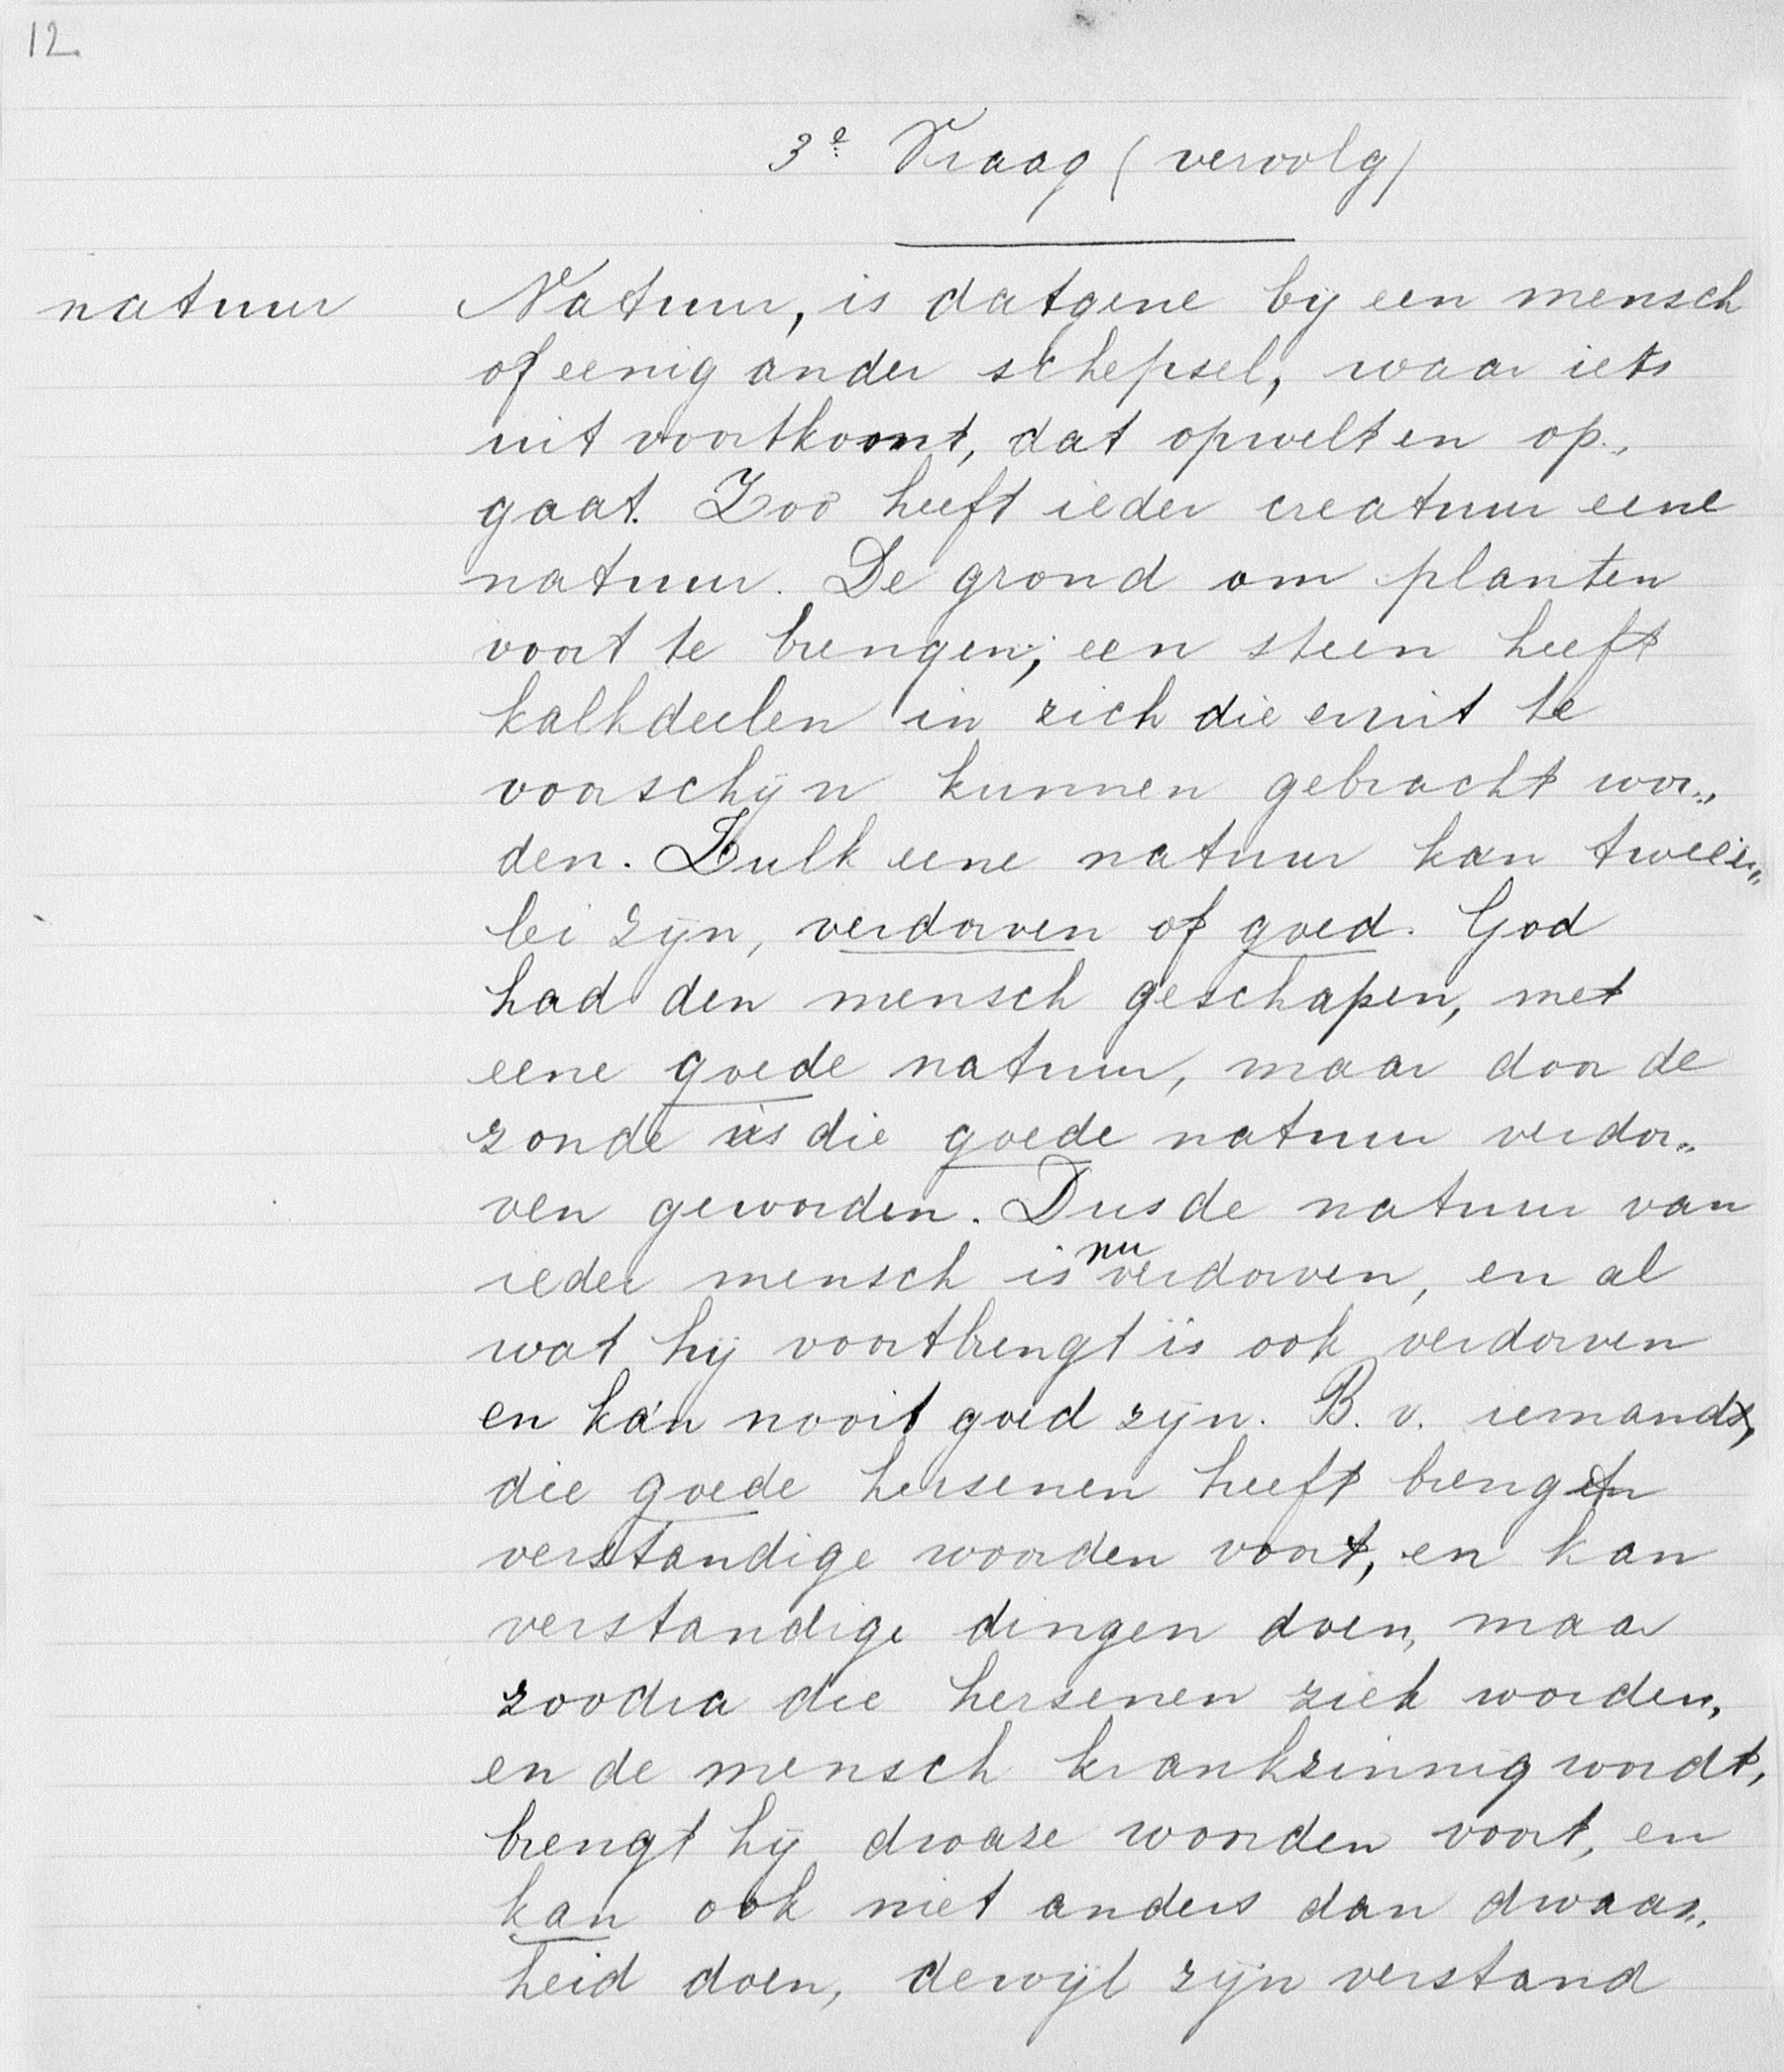 12
3e Vraag (vervolg)
natuur
Natuur, is datgene bij een mensch
of eenig ander schepsel, waar iets
uit voortkomt, dat opwelt en op„
gaat. Zoo heeft ieder creatuur eene
natuur. De grond om planten
voort te brengen; een steen heeft
kalkdeelen in zich die eruit te
voorschijn kunnen gebracht wor„
den. Zulk eene natuur kan tweeër„
lei zijn, verdorven of goed. God
had den mensch geschapen, met
eene goede natuur, maar door de
zonde is die goede natuur verdor„
ven geworden. Dus de natuur van
ieder mensch is nu verdorven, en al
wat hij voortbrengt is ook verdorven
en kán nooit goed zijn. B. v. iemand,
die goede hersenen heeft brengt
verstandige woorden voort, en kan
verstandige dingen doen, maar
zoodra die hersenen ziek worden,
en de mensch krankzinnig wordt,
brengt hij dwaze woorden voort, en
kan ook niet anders dan dwaas„
heid doen, dewijl zijn verstand